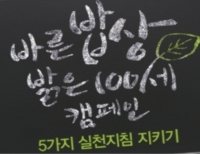 바른 밥상
밝은 100세
캠페인
5가지 실천지침 지키기